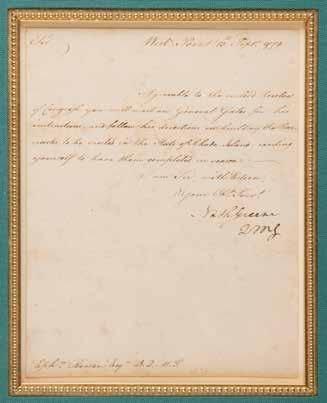 Sir West Point 13th Sept. 1779
Agreeable to the inclosed Resolve
of Congress you will wait on General Gates for his
instructions, and follow his directions in building the Bar-
racks to be erected in the State of Rhode Island,
yourself to have them completed in season.
I am Sir with Esteem
Your Obt. Servt.
Nath Greene
QMG
Ephm. Bowen Esqr. D.Q.M.G.